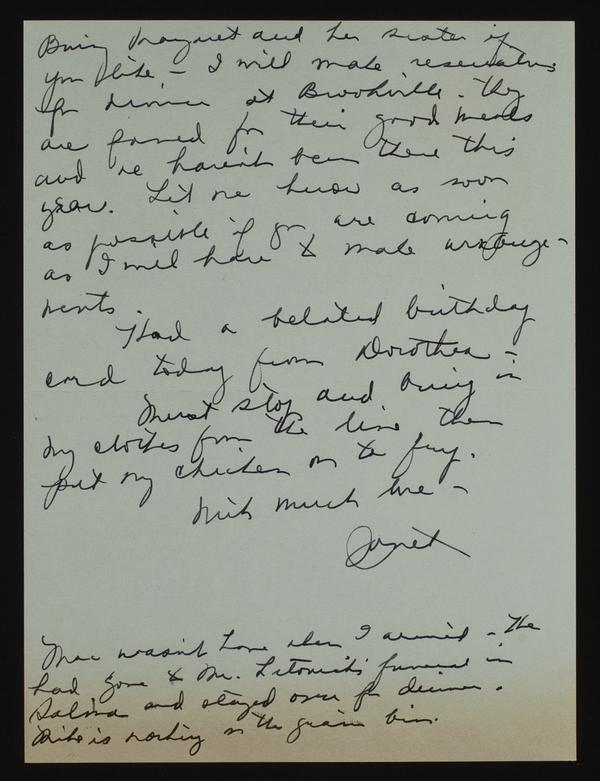 Bring Margaret and her sister if
you like – I will make reservations
for dinner at Brookville. They
are famed for their good meals
and we haven't been there this
year. Let me know as soon
as possible if you are coming
as I will have to make arrange-
ments.
Had a belated birthday
card today from Dorothea –
Must stop and bring in
my clothes from the line then
put my chicken on to fry.
With much love –
Janet
Mac wasn't home when I arrived – He
had gone to Mr. funeral in
Salina and stayed over for dinner.
is working on the grain bin.